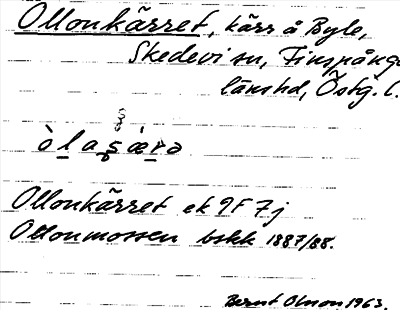 Ollonkärret, kärr å Byle,
Skedevi sn, Finspånga
länshd, Östg. l.
Ollonkärret ek 9F 7j
Ollonmossen bskk 1887/88.
Bernt Olsson 1963.